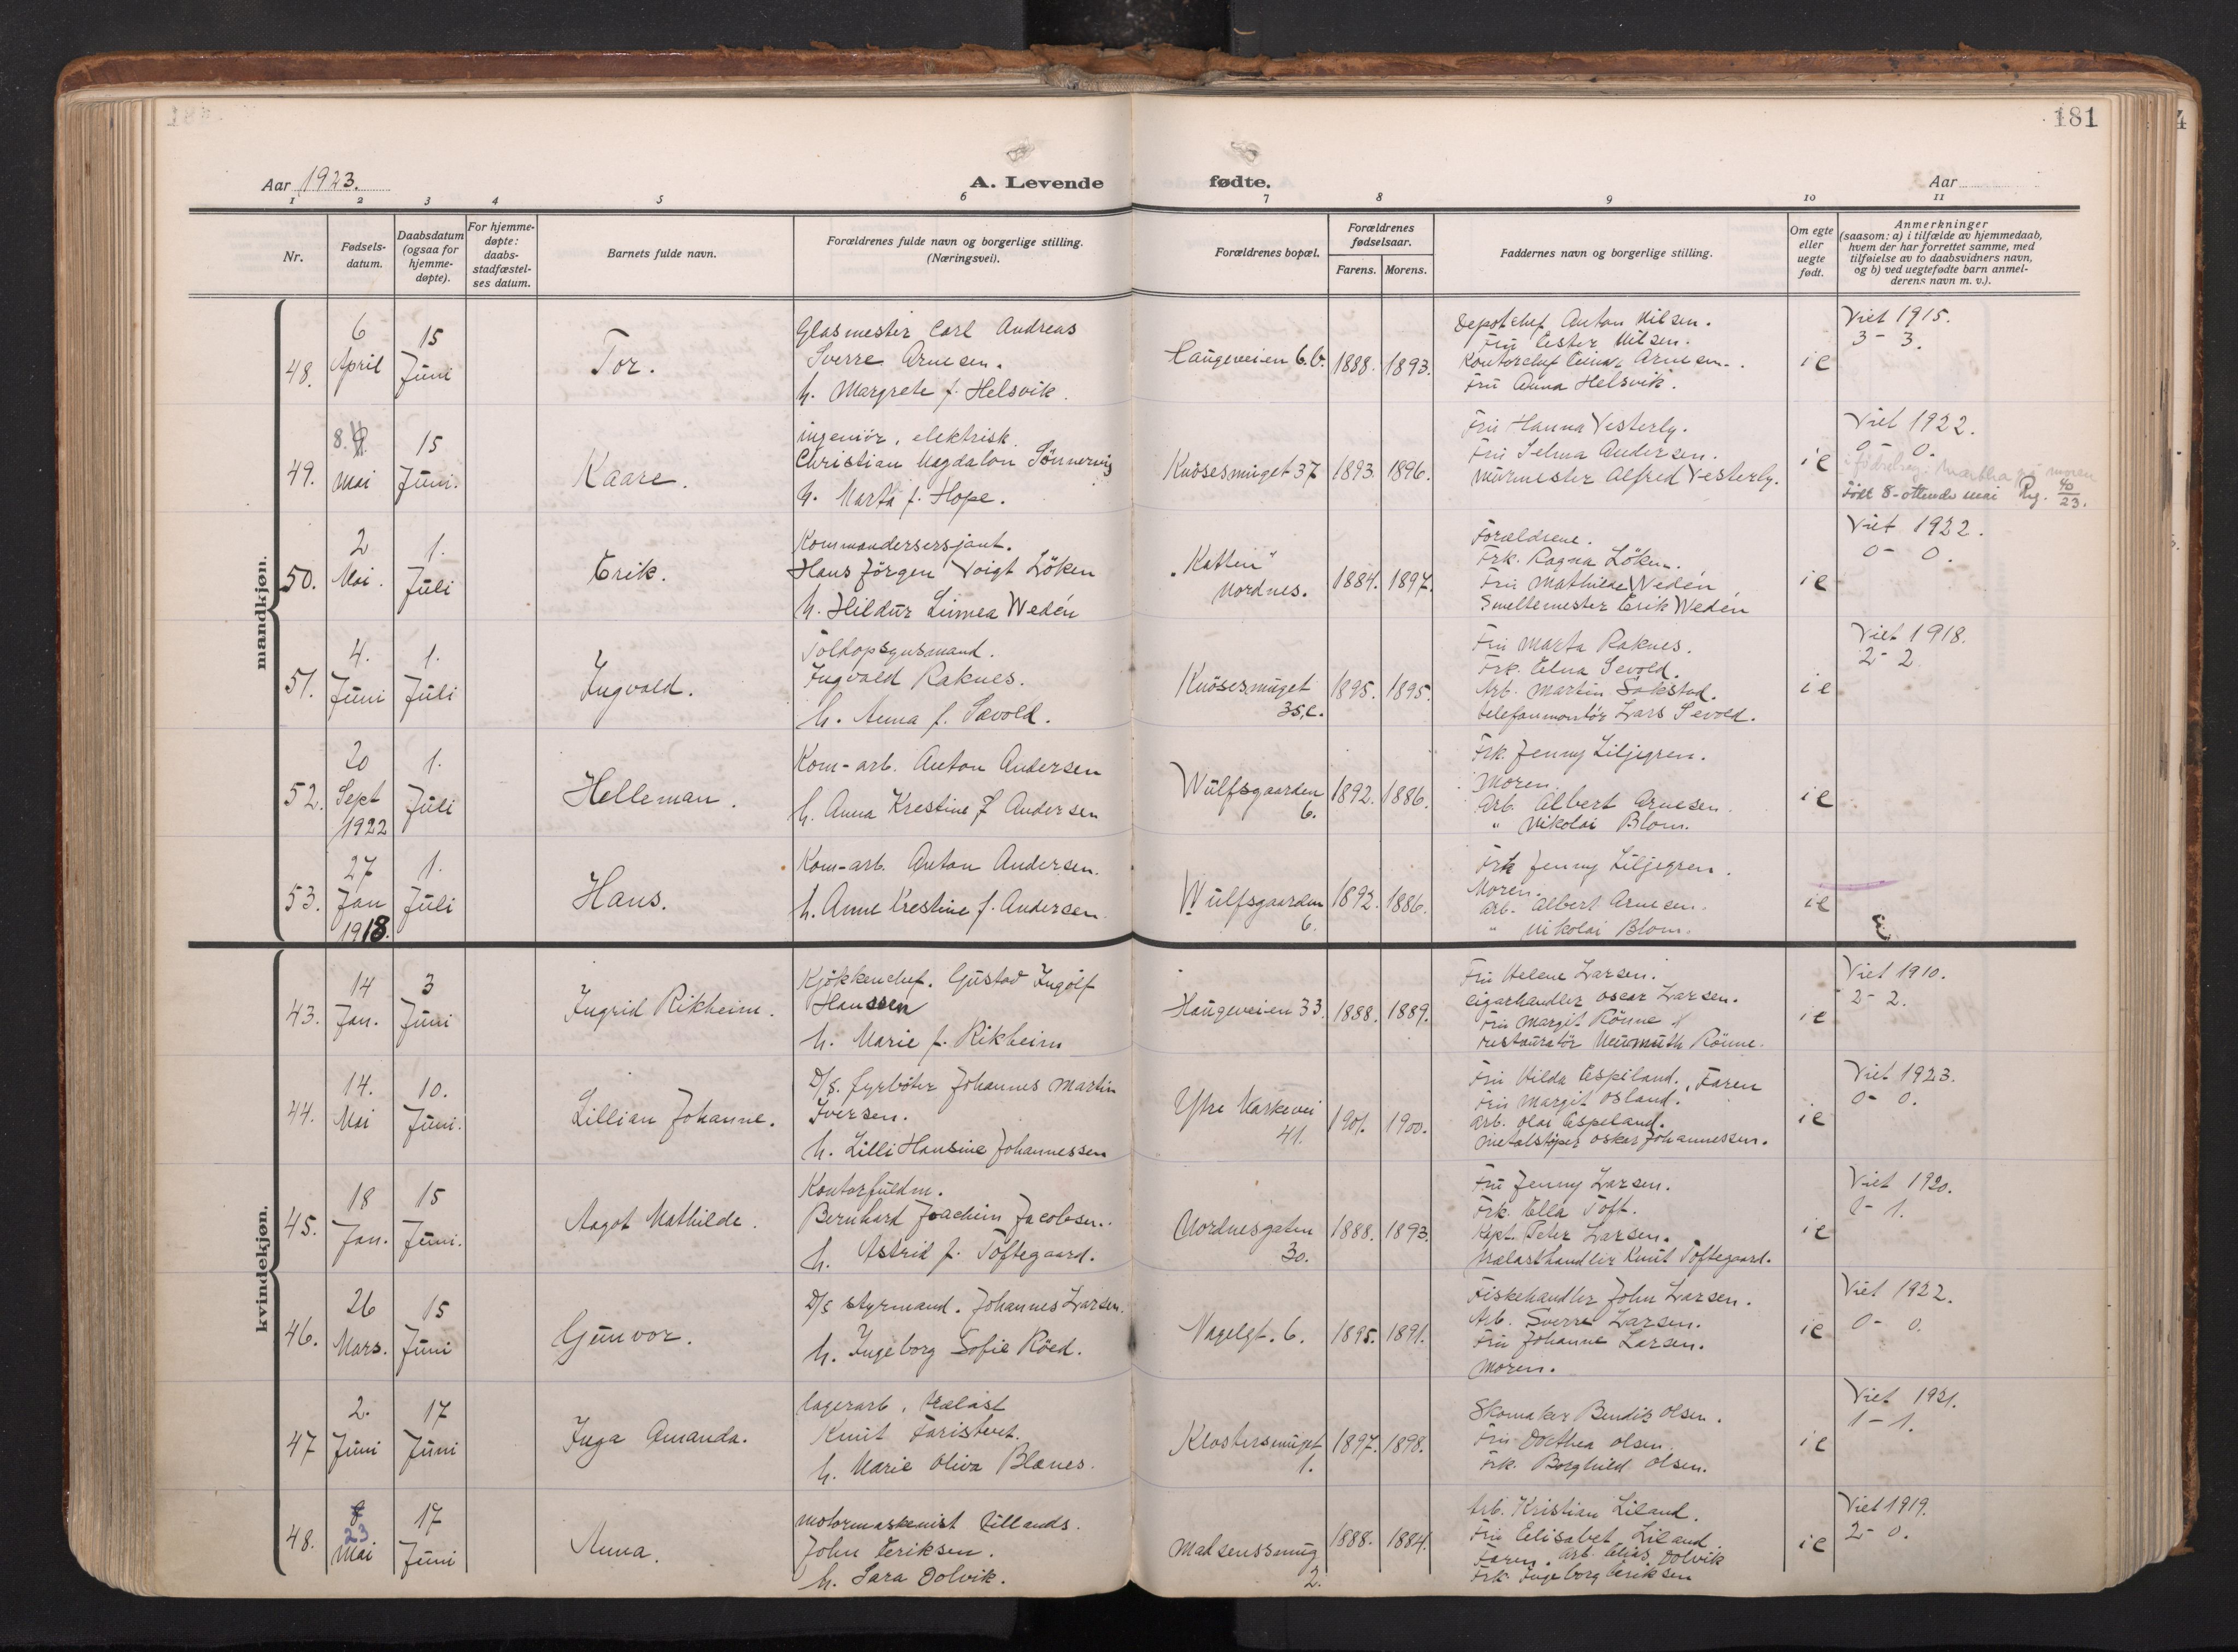 181
Aar 1923.
A. Levende fødte.
Aar
1 2 3 4 5 6 7 8 9 10 11
Nr.
Fødsels-
datum.
Daabsdatum
(ogsaa for
hjemme-
døpte).
For hjemme-
døpte:
daabs-
stadfæstel-
ses datum.
Barnets fulde navn.
Forældrenes fulde navn og borgerlige stilling.
(Næringsvei).
Forældrenes bopæl.
Forældrenes
fødselsaar.
Farens. Morens.
Faddernes navn og borgerlige stilling.
Om egte
eller
uegte
født.
Anmerkninger
(saasom: a) i tilfælde av hjemmedaab,
hvem der har forrettet samme, med
tilføielse av to daabsvidners navn,
og b) ved uegtefødte barn anmel-
derens navn m. v.).
mandkjøn.
48.
6
April
15
Juni
Tor.
Glasmester Carl Andreas
Sverre Arnesen.
h. Margrete f. Helsvik.
Haugeveien 6.b.
1888. 1893.
Depotchef Anton Nilsen.
Fru Ester Nilsen.
Kontorchef Einar Arnesen.
Fru Anna Helsvik.
ie
Viet 1915.
3- 3.
49.
8.
Mai
15
Juni.
Kaare.
ingeniör, elektrisk.
Christian Magdalon Sönnervig
h. Marta f. Hope.
Knösesmuget 37
1893. 1896.
Fru Hanna Vesterly.
Fru Selma Andersen.
Murmester Alfred Vesterly.
ie
Viet 1922.
0- 0.
Født 8-ottende mai Reg. 40/23.
50.
2
Mai.
1.
Juli
Erik.
Kommandersersjant.
Hans Jörgen Voigt Löken
h. Hildur Linnea Wedén
"Katten"
Nordnes.
1884. 1897.
Forældrene.
Frk. Ragna Löken.
Fru Mathilde Wedén
Smeltemester Erik Wedén
ie
Viet 1922.
0- 0.
51.
4.
Juni
1.
Juli
Ingvald.
Toldopsynsmand.
Ingvald Raknes.
h. Anna f. Sævold.
Knösesmuget
35,c.
1895. 1895.
Fru Marta Raknes.
Frk. Elna Sevold.
Arb. Martin Sakstad.
telefonmontör Lars Sevold.
ie
Viet 1918.
2- 2.
52.
20
Sept
1922
1.
Juli
Helleman.
Kom-arb. Anton Andersen
h. Anna Krestine f Andersen
Wülfsgaarden
6.
1892. 1886.
Frk. Jenny Liljegren.
Moren.
Arb. Albert Arnesen.
" Nikolai Blom.
ie
53.
27
Jan
1918.
1.
Juli
Hans.
Kom-arb. Anton Andersen.
h. Anne Krestine f. Andersen.
Wülfsgaarden
6.
1892. 1886.
Frk Jenny Liljegren.
Moren.
Arb. Albert Arnesen.
" Nikolai Blom.
ie
kvindekjøn.
43.
14
Jan.
3
Juni
Ingrid Rikheim.
Kjökkenchef. Gustav Ingolf
Hanssen
h. Marie f. Rikheim
Haugeveien 33.
1888. 1889.
Fru Helene Larsen.
Cigarhandler Oscar Larsen.
Fru Margit Rönne
restauratör Neumuth Rönne.
ie
Viet 1910.
2- 2.
44.
14.
Mai
10.
Juni.
Lillian Johanne.
D/s. fyrböter Johannes Martin
Iversen.
h. Lilli Hansine Johannessen
Ytre Markevei
41.
1901. 1900.
Fru Hilda Espeland. Faren
Fru Margit Osland.
Arb. Olai Espeland.
Metalstöper Oskar Johannessen.
ie
Viet 1923.
0- 0.
45.
18
Jan.
15
Juni.
Aagot Mathilde.
Kontorfuldm.
Bernhard Joachim Jacobsen.
h. Astrid f. Toftegaard.
Nordnesgaten
30.
1888. 1893.
Fru Jenny Larsen.
Frk. Ella Toft.
Kapt. Peter Larsen.
Trælasthandler Knut Toftegaard.
ie
Viet 1920.
1- 1.
46.
26
Mars.
15
Juni
Gunvor.
D/s styrmand. Johannes Larsen.
h. Ingeborg Sofie Röed.
Nagelgt. 6.
1895. 1891.
Fiskehandler John Larsen.
Arb. Sverre Larsen.
Fru Johanne Larsen.
Moren.
ie
Viet 1922.
0- 0.
47
2.
Juni
17
Juni
Inga Amanda.
lagerarb, trælast
Knut Faristveit.
h. Marie Oliva Blænes.
Klostersmuget
1.
1897. 1898.
Skomaker Bendik Olsen.
Fru Dorthea Olsen.
Frk. Borghild Olsen.
ie
Viet 1921.
1- 1.
48.
23
Mai
17
Juni
Anna.
Motormaskinist Utlands.
John Eriksen.
h. Sara Dolvik.
Madsenssmug
2.
1888. 1884.
Arb. Kristian Liland.
Fru Elisabet Liland
Faren. Arb. Elias Dolvik
Frk. Ingeborg Eriksen
ie
Viet 1919.
2- 0.